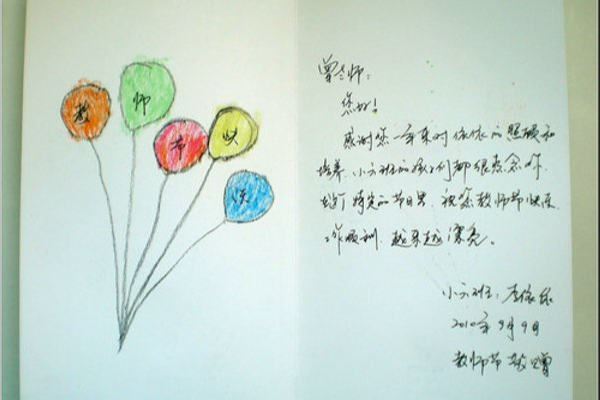 教
师
节
快
乐
曾老师:
您好!
感谢您一年来对依依的照顾和
培养。小六班的孩子们都很想念你。
在这个特别的节日里,祝您教师节快乐
工作顺利,越来越漂亮。
小六班:李依依
2010年9月9日
教师节